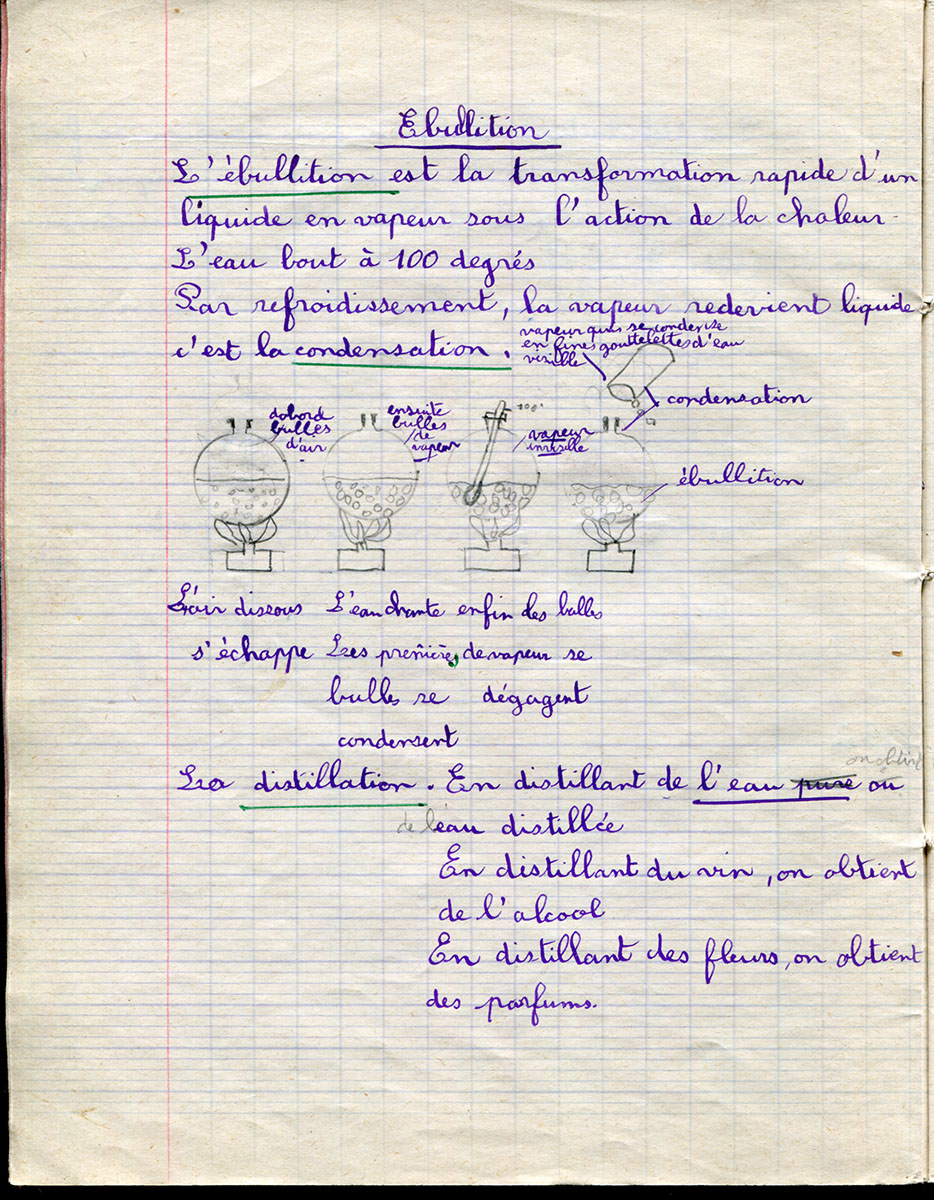 Ebullition
L'ébullition est la transformation rapide d'un
liquide en vapeur sous l'action de la chaleur.
L'eau bout à 100 degrés
Par refroidissement, la vapeur redevient liquide
c'est la condensation.
vapeur qui se condense
en fines gouttelettes d'eau
visible
condensation
dabord
bulles
d'air
ensuite
bulles
de
vapeur
100°
vapeur
invisible
ébullition
L'air dissous L'eau chante enfin des bulles
s'échappe Les premières de vapeur se
bulles se dégagent
condensent
on obtient
La distillation. En distillant de l'eau pure ou
de l'eau distillée
En distillant du vin, on obtient
de l'alcool
En distillant des fleurs, on obtient
des parfums.